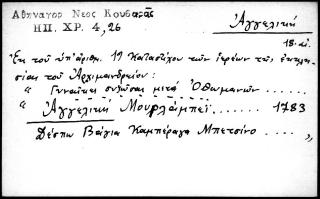 Ἀθηναγορ Νεος Κουβαρᾶς
ΗΠ. ΧΡ. 4, 26
Ἀγγελικὴ
18. αἰ.
Ἐκ τοῦ ὑπ' ἀριθμ. 19 Καταστίχου τῶν ἱερέων τῆς ἐκκλη-
σίας τοῦ Ἀρχιμανδρείου:
" Γυναῖκαι συζῶσαι μετὰ Ὀθωμανῶν .....
" Ἀγγελικὴ Μουρλάμπεϊ ....... 1783
Δέσπω Βάγια Καμπέραγα Μπετσίνο ..... "